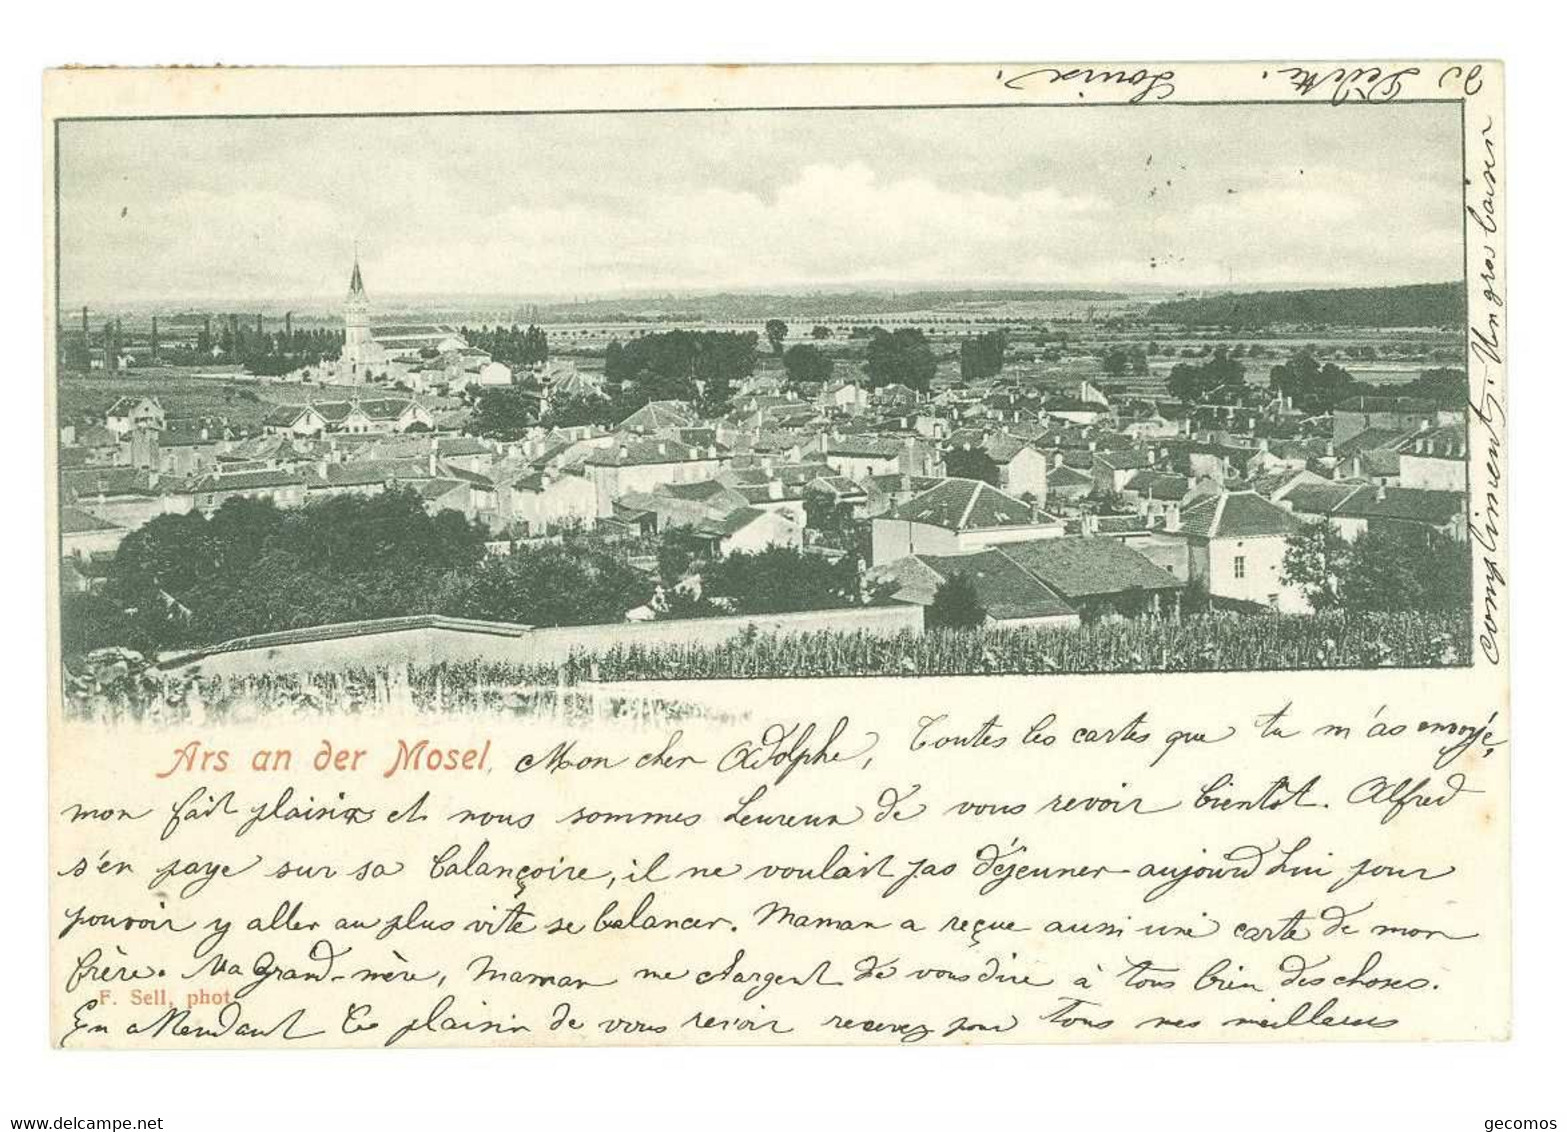 Ars an der Mosel. Mon cher Adolphe, Toutes les cartes que tu m'as envoyé,
mon fait plaisir et nous sommes heureux de vous revoir bientôt. Alfred
s'en paye sur sa balançoire, il ne voulait pas déjeuner aujourd'hui pour
pouvoir y aller au plus vite se balancer. Maman a reçue aussi une carte de mon
frère. Ma Grand-mère, Maman me chargent de vous dire à tous bien des choses.
F. Sell, phot.
En attendant le plaisir de vous revoir recevez pour tous mes meilleurs
compliments. Un gros baiser
Louise.
www.delcampe.net
gecomos